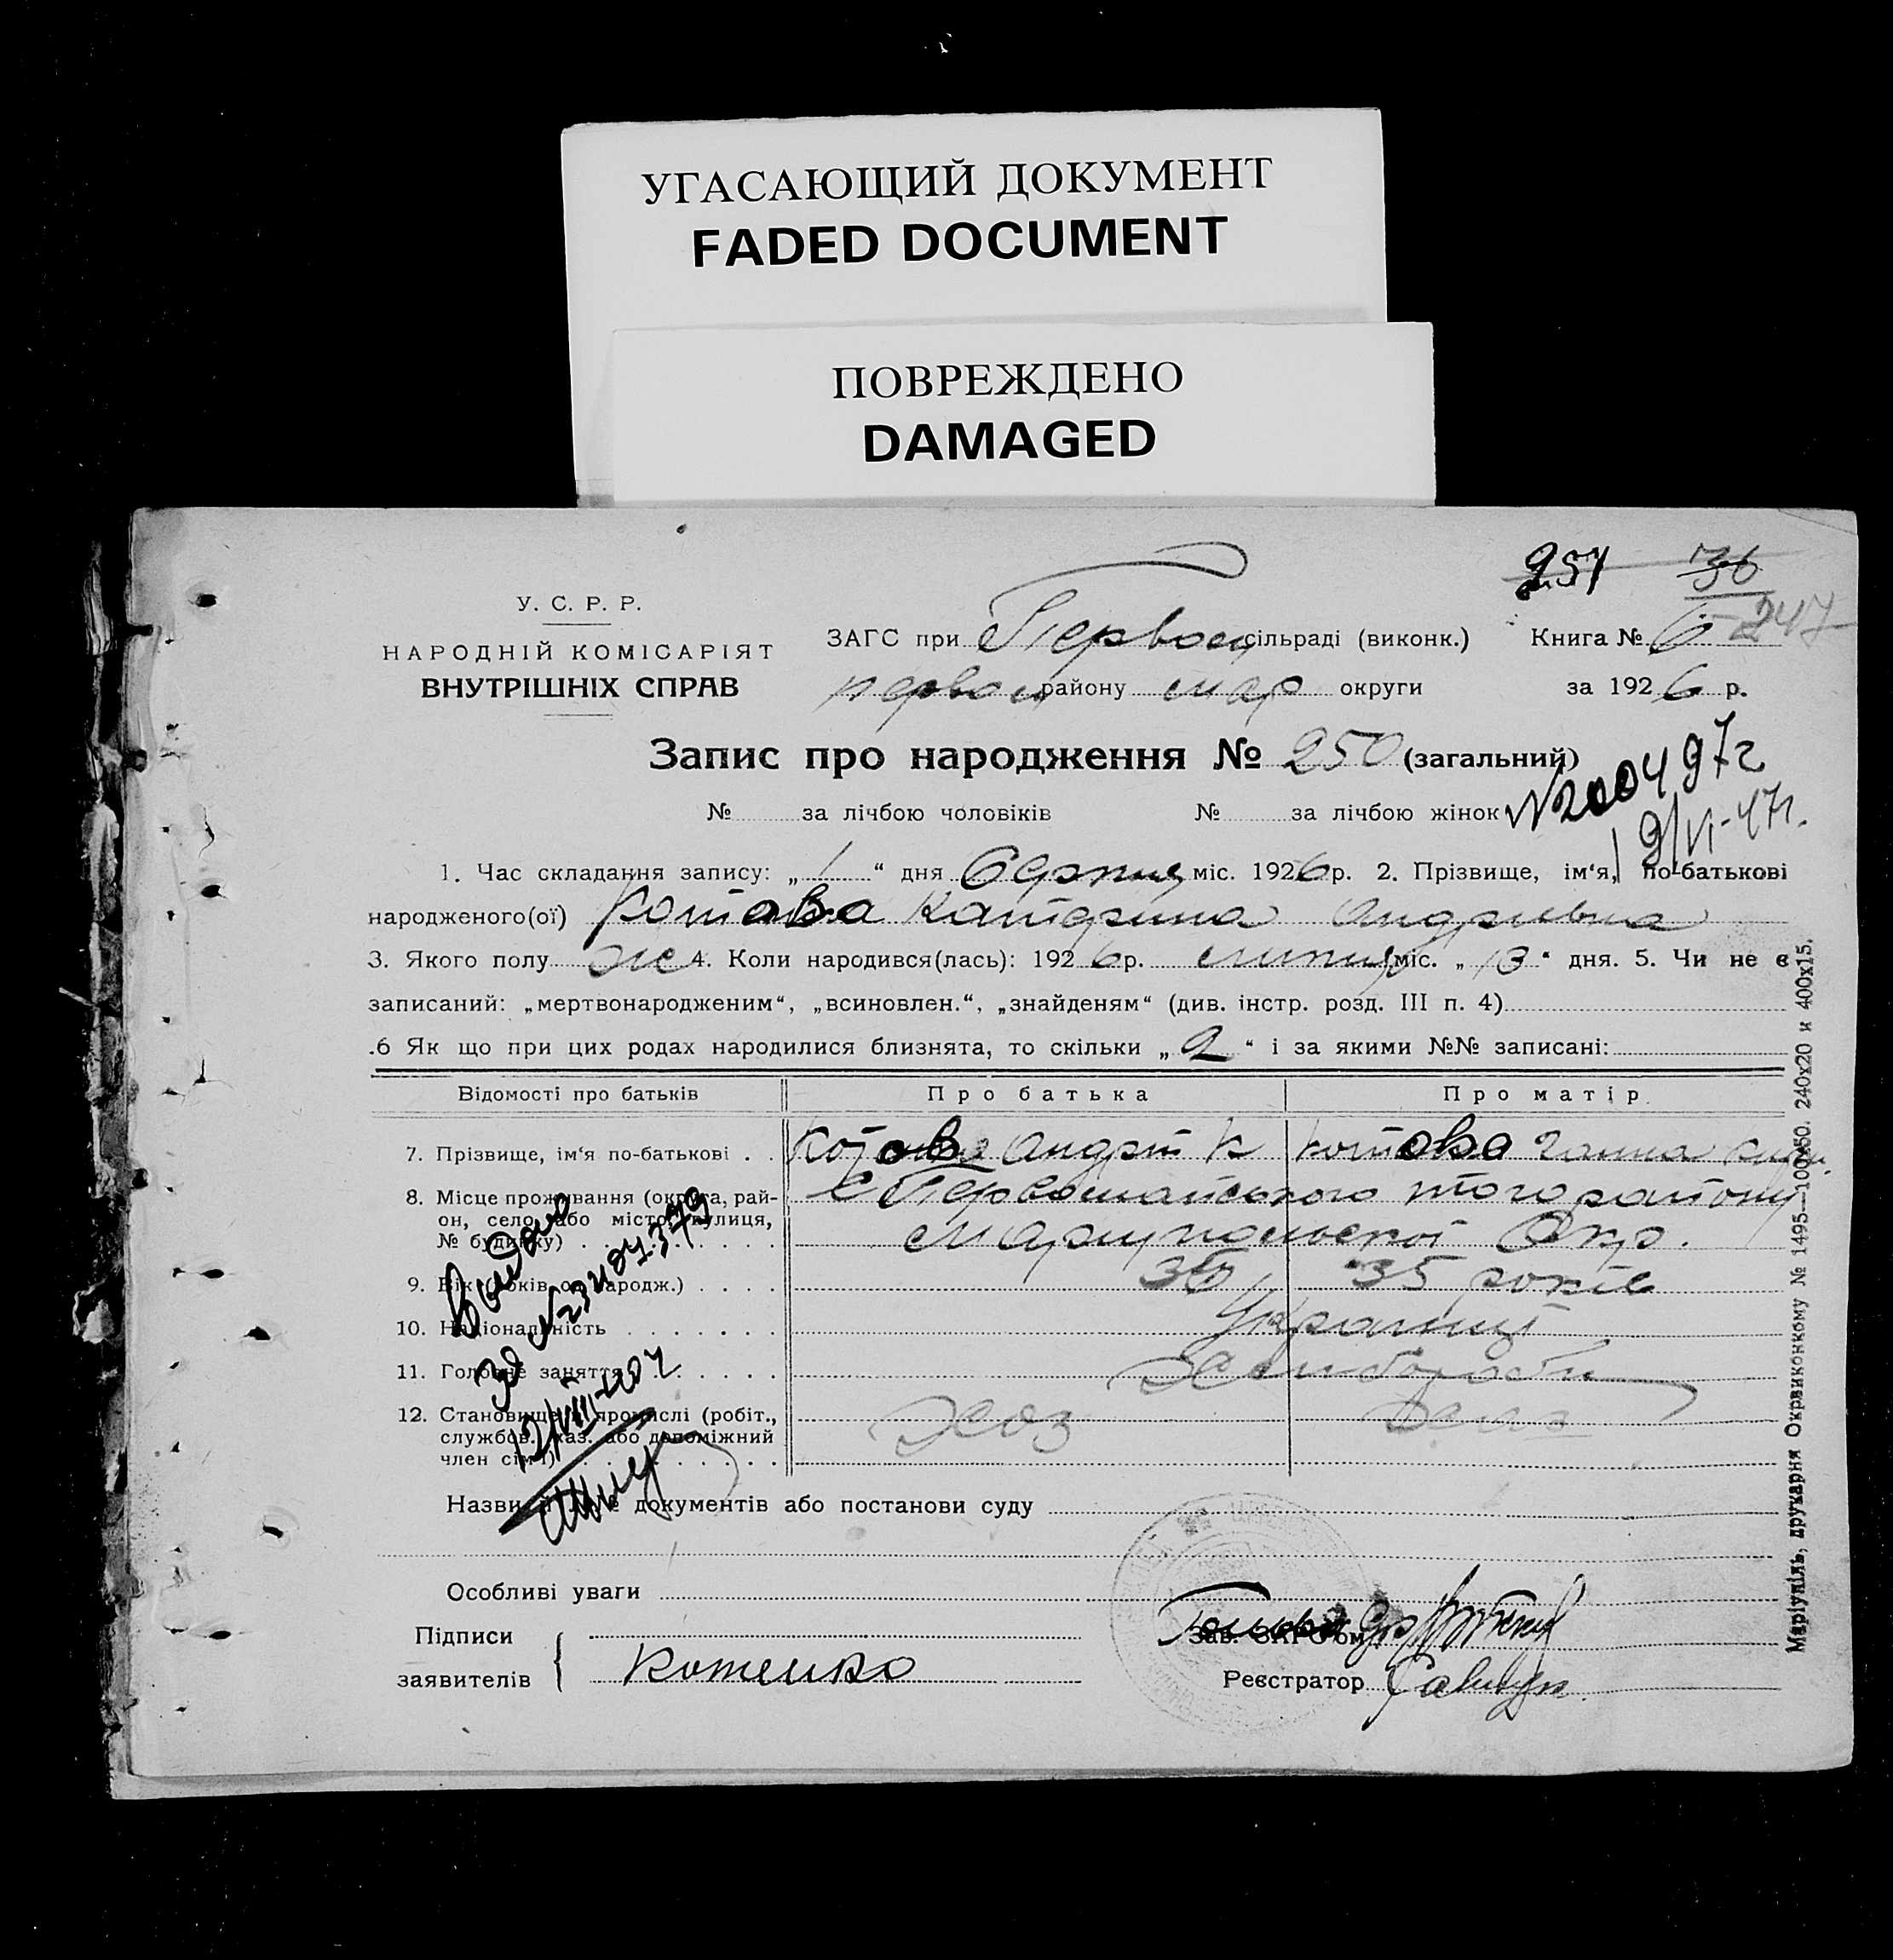 УГАСАЮЩИЙ ДОКУМЕНТ
FADED DOCUMENT
ПОВРЕЖДЕНО
DAMAGED
251 36
У. С. Р. Р.
НАРОДНІЙ КОМІСАРІЯТ
ВНУТРІШНІХ СПРАВ
ЗАГС при Первом сільраді (виконк.) Книга № 6 247
первом району мар округи за 1926 р.
Запис про народження № 250 (загальний)
№ за лічбою чоловіків № за лічбою жінок
1. Час складання запису: „ 1 “ дня Серпня міс. 1926 р. 2. Прізвище, ім‘я, по-батькові
народженого(ої) Котова Катерина Андриевна
3. Якого полу же 4. Коли народився(лась): 1926 р. липня міс. „ 13 “ дня. 5. Чи не є
записаний: „мертвонародженим“, „всиновлен.“, „знайденям“ (див. інстр. розд. III п. 4)
.6 Як що при цих родах народилися близнята, то скільки „ 2 “ і за якими №№ записані:
Відомості про батьків Про батька Про матір
7. Прізвище, ім‘я по-батькові . . Котов Андрій К Котова Ганна
8. Місце проживання (округа, рай-
он, село або місто, вулиця,
№ будинку) . . . . . . . . . .
с Первомайського того району
Маріупольскої Окр.
9. Вік (років од народж.) . . . . 36 35 років
10. Національність . . . . . . . Українці
11. Головне заняття . . . . . . . Хлибороби
12. Становище в промислі (робіт.,
службов., хаз. або допоміжний
член сім‘ї) . . . . . . . . . .
Хоз
Назви й №№ документів або постанови суду
Особливі уваги
Підписи
заявителів
Котенко
Зав. ЗАГС‘ом
Реєстратор Савчук
Маріупіль, друкарня Окрвиконкому № 1495—100х50. 240х20 и 400х15.